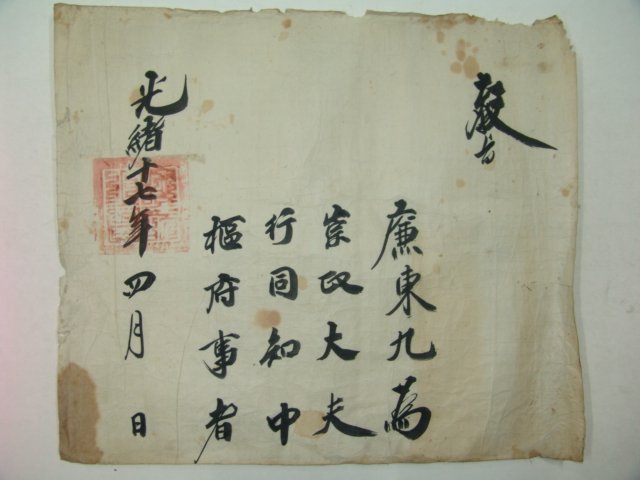 敎旨
廉東九爲
崇政大夫
行同知中
樞府事者
光緖十七年四月 日